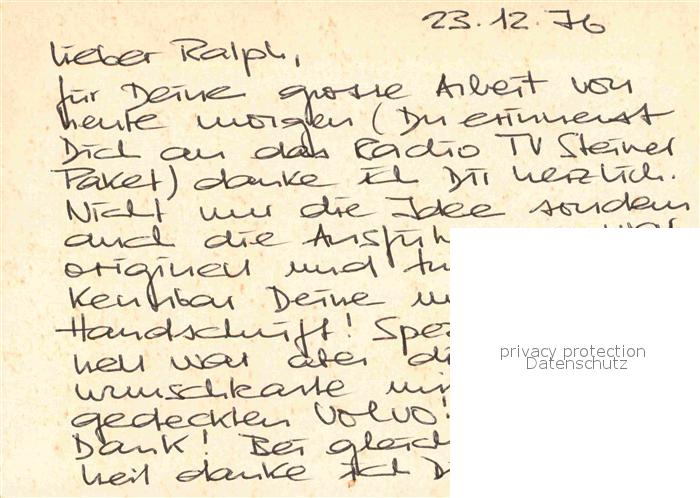 23.12.76
lieber Ralph,
für Deine grosse Arbeit von
heute morgen (Du erinnerst
Dich an das Radio TV Steiner
Paket) danke ich Dir herzlich.
Nicht nur die Idee sondern
auch die Ausfüh
originell und
Kennbar Deine
Handschrift! Spez
nell war aber di
wunschkarte mi
gedeckten Volvo!
Dank! Bei gleich
heit danke ich D
privacy protection
Datenschutz